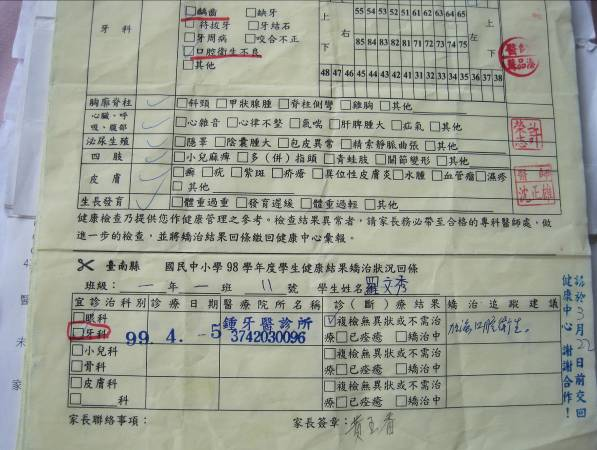 牙科
□齲齒 □缺牙
□待拔牙 □牙結石
□牙周病 □咬合不正
☑口腔衛生不良
□其他
上 右 下
55 54 53 52 51 61 62 63 64 65
85 84 83 82 81 71 72 73 74 75
上 左 下
48 47 46 45 44 43 42 41 31 32 33 34 35 36 37 38
胸廓脊柱 ✓ □斜頸 □甲狀腺腫 □脊柱側彎 □雞胸 □其他
心臟、呼吸、腹部 ✓ □心雜音 □心律不整 □氣喘 □肝脾腫大 □疝氣 □其他
泌尿生殖 ✓ □隱睪 □陰囊腫大 □包皮異常 □精索靜脈曲張 □其他
四肢 ✓ □小兒麻痺 □多(併)指頭 □青蛙肢 □關節變形 □其他
皮膚 ✓ □癬 □疣 □紫斑 □疥瘡 □異位性皮膚炎 □水腫 □血管瘤 □濕疹
□其他
生長發育 ✓ □體重過重 □發育遲緩 □體重過輕 □其他
醫師
沈正雄
健康檢查乃提供您作健康管理之參考。檢查結果異常者,請家長務必帶至合格的專科醫師處,做
進一步的檢查,並將矯治結果回條繳回健康中心彙報。
✂ 臺南縣 國民中小學98學年度學生健康結果矯治狀況回條
班級: 一 年 一 班 11 號 學生姓名 羅文秀
宜診治科別 診療日期 醫療院所名稱 診(斷)療結果 矯治追蹤建議
□眼科
□牙科 99.4.-5 鍾牙醫診所 3742030096 ☑複檢無異狀或不需治療 □已痊癒 □矯治中 加強口腔衛生。
□小兒科
□骨科 □複檢無異狀或不需治療 □已痊癒 □矯治中
□皮膚科
□ 科 □複檢無異狀或不需治療 □已痊癒 □矯治中
請於3月22日前交回
健康中心 謝謝合作!
家長聯絡事項: 家長簽章: